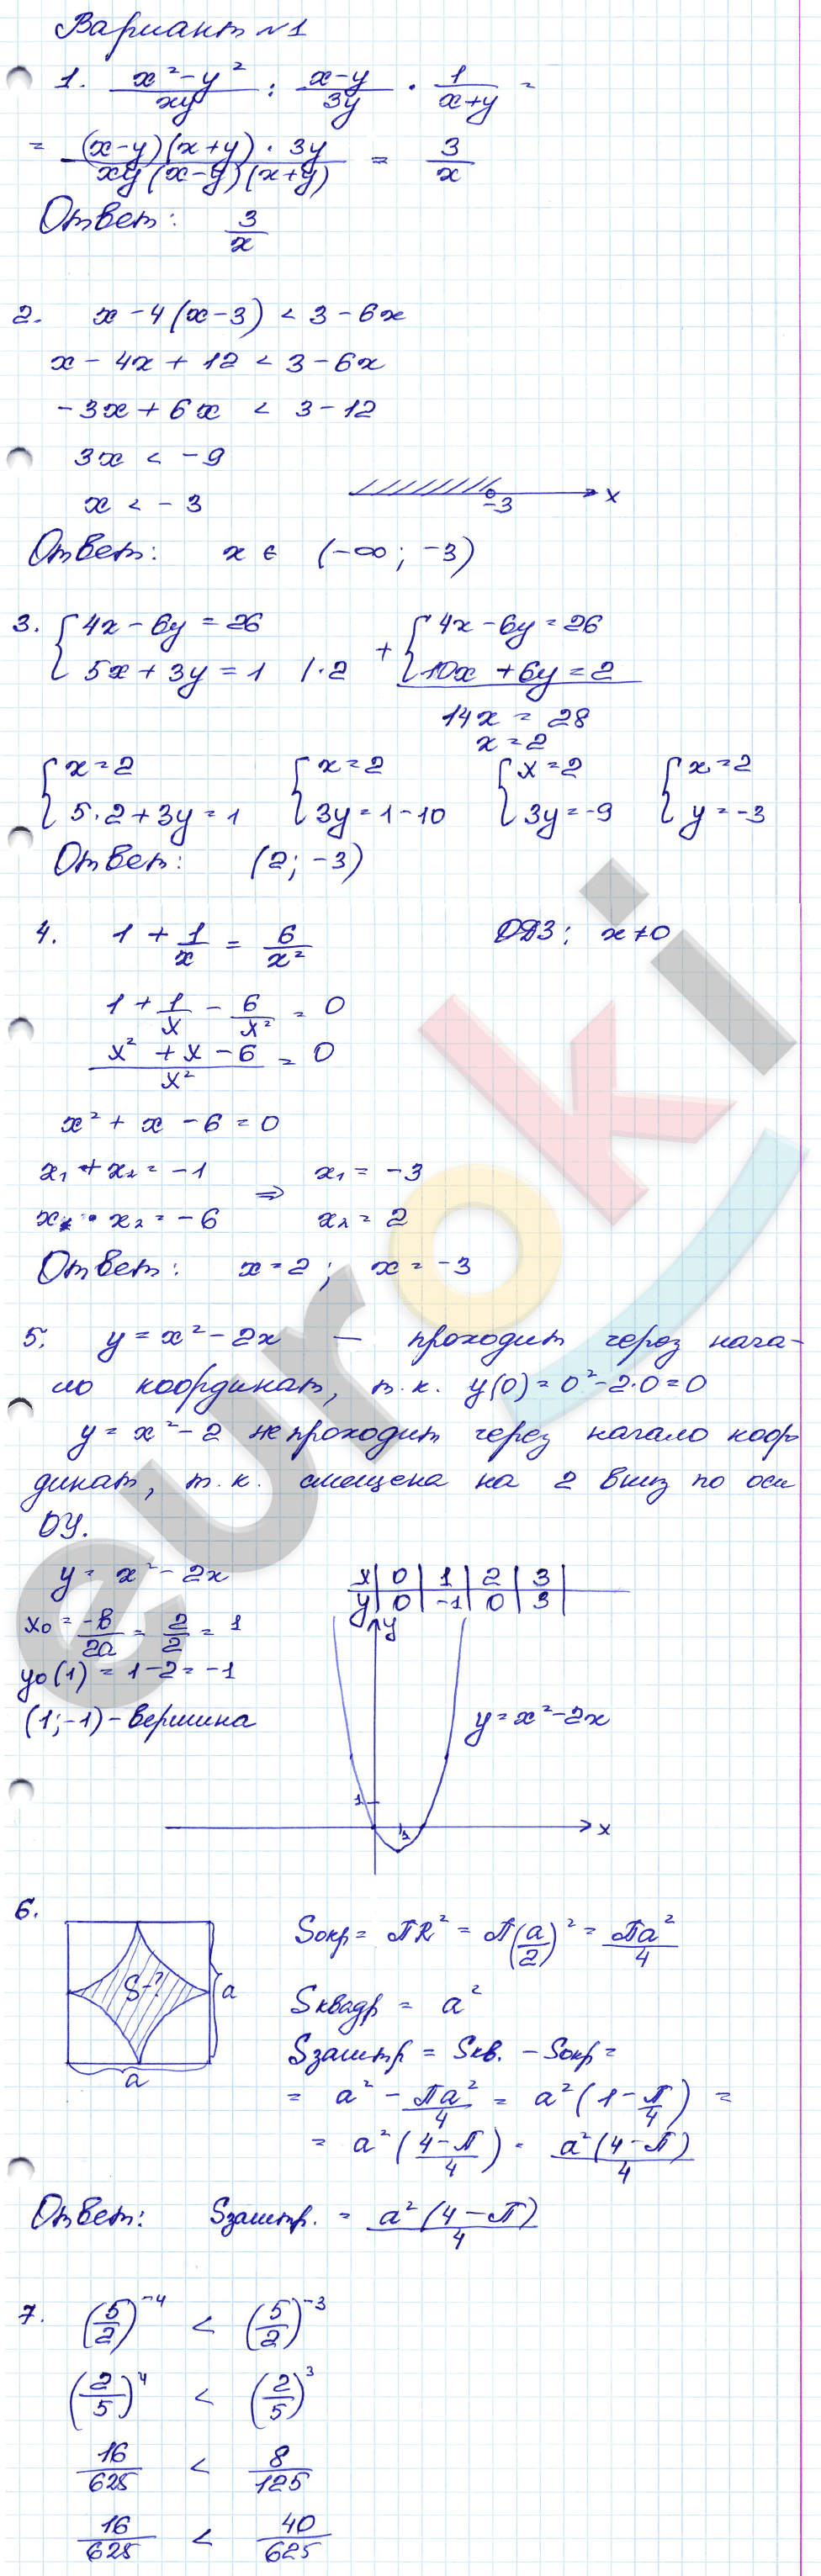 Вариант №1
1. (x²-y²)/(xy) : (x-y)/(3y) · 1/(x+y) =
= ((x-y)(x+y)·3y)/(xy(x-y)(x+y)) = 3/x
Ответ: 3/x
2. x-4(x-3) < 3-6x
x-4x+12 < 3-6x
-3x+6x < 3-12
3x < -9
x < -3
-3 x
Ответ: x ∈ (-∞; -3)
3. { 4x-6y=26 + { 4x-6y=26
5x+3y=1 |·2 10x+6y=2
14x = 28
x=2
{ x=2 { x=2 { x=2 { x=2
5·2+3y=1 3y=1-10 3y=-9 y=-3
Ответ: (2; -3)
4. 1 + 1/x = 6/x² ОДЗ: x≠0
1 + 1/x - 6/x² = 0
(x²+x-6)/x² = 0
x²+x-6=0
x₁+x₂=-1 ⇒ x₁=-3
x₁·x₂=-6 x₂=2
Ответ: x=2; x=-3
5. y=x²-2x — проходит через нача-
ло координат, т.к. y(0)=0²-2·0=0
y=x²-2 не проходит через начало коор
динат, т.к. смещена на 2 вниз по оси
OY.
y= x²-2x
x | 0 | 1 | 2 | 3 |
y | 0 | -1 | 0 | 3 |
x₀ = -в/2a = 2/2 = 1
y₀(1) = 1-2=-1
(1;-1)-вершина
y
y=x²-2x
1
1
x
6.
S-?
a
a
Sокр= πR² = π(a/2)² = πa²/4
Sквадр = a²
Sзаштр = Sкв. - Sокр=
= a² - πa²/4 = a²(1-π/4) =
= a²((4-π)/4) = a²(4-π)/4
Ответ: Sзаштр. = a²(4-π)/4
7. (5/2)⁻⁴ < (5/2)⁻³
(2/5)⁴ < (2/5)³
16/625 < 8/125
16/625 < 40/625
euroki